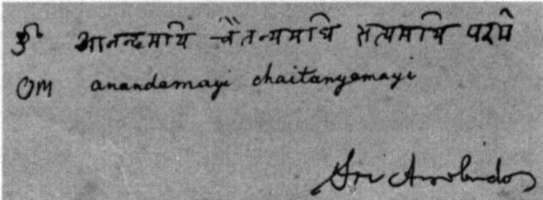 ॐ आनन्दमयि चैतन्यमयि सत्यमयि परमे
OM anandamayi chaitanyamayi
Sri Aurobindo